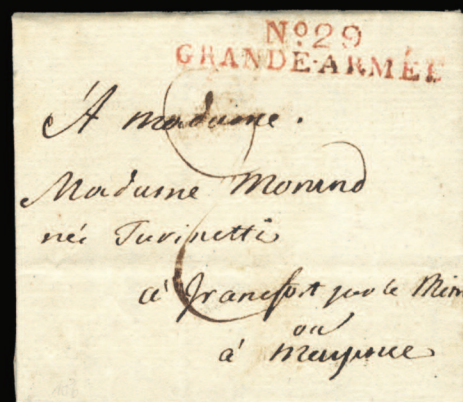 No 29
GRANDE·ARMÉE
À madame.
Madame Morand
née Turinetti
à francfort sur le Mein
ou
à Mayence